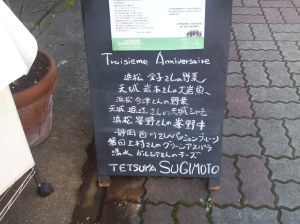 Troisieme Anniversaire
浜松 金子さんの野菜
天城 岩本さんの
浜松 今津さんの野菜
天城
浜松 峯野さんの峯野牛
静岡 西川さんのパッションフルーツ
磐田 上村さんのグリーンアスパラ
清水 さんのチーズ
TETSUYA SUGIMOTO